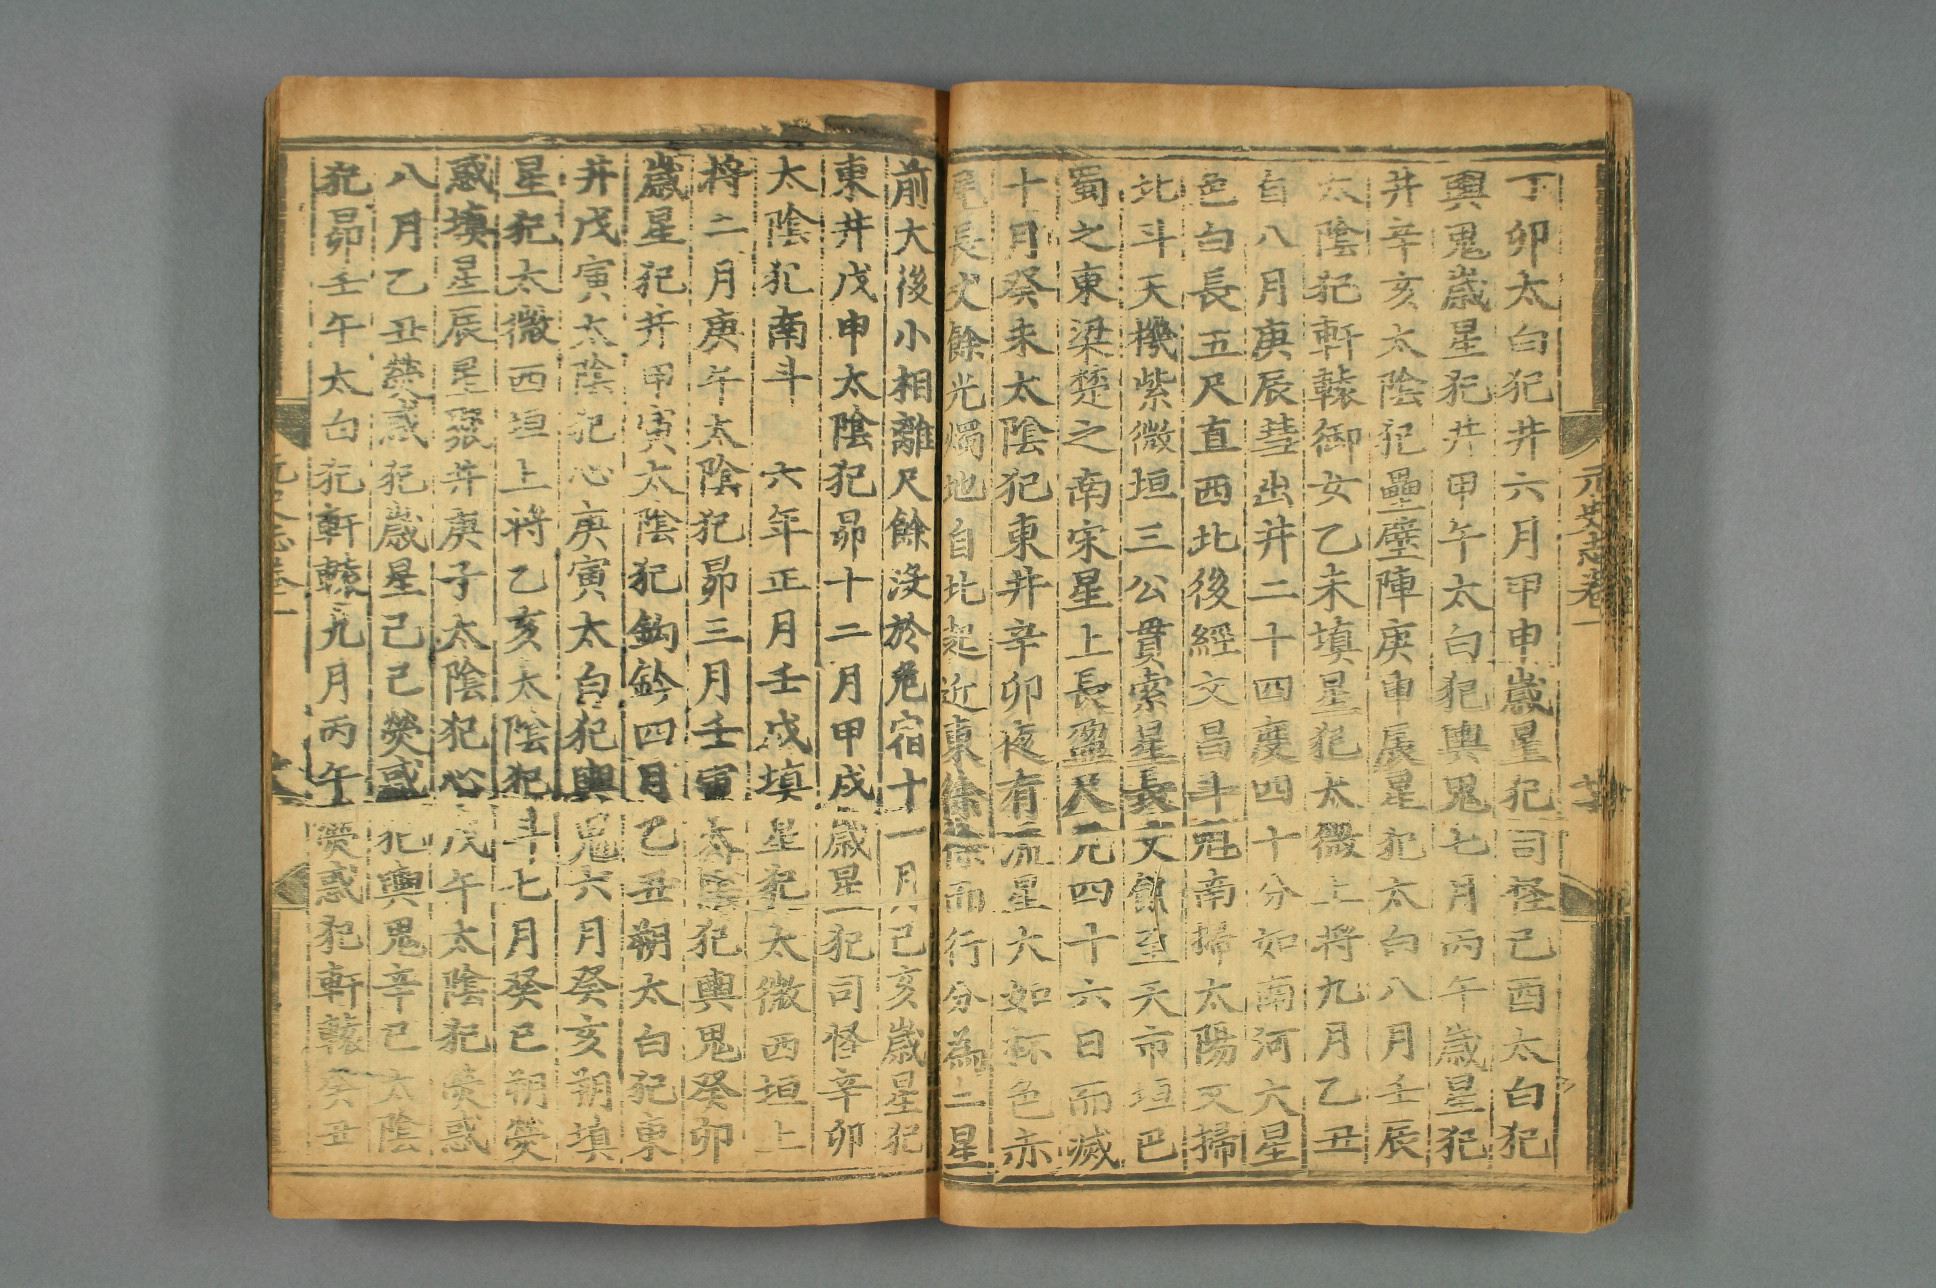 丁卯太白犯井六月甲申歲星犯司怪己酉太白犯
輿鬼歲星犯井甲午太白犯輿鬼七月丙午歲星犯
井辛亥太陰犯壘壁陣庚申辰星犯太白八月壬辰
太陰犯軒轅御女乙未填星犯太微上將九月乙丑
自八月庚辰彗出井二十四度四十分如南河大星
色白長五尺直西北後經文昌斗魁南掃太陽又掃
北斗天機紫微垣三公貫索星長丈餘至天市垣巴
蜀之東梁楚之南宋星上長盈尺凡四十六日而滅
十月癸未太陰犯東井辛卯夜有流星大如杯色赤
尾長丈餘光燭地自北起近東徐徐而行分為二星
前大後小相離尺餘沒於危宿十一月己亥歲星犯
東井戊申太陰犯昴十二月甲戌歲星犯司怪辛卯
太陰犯南斗 六年正月壬戌填星犯太微西垣上
將二月庚午太陰犯昴三月壬寅太陰犯輿鬼癸卯
歲星犯井甲寅太陰犯鈎鈐四月乙丑朔太白犯東
井戊寅太陰犯心庚寅太白犯輿鬼六月癸亥朔填
星犯太微西垣上將乙亥太陰犯斗七月癸巳朔熒
惑填星辰星聚井庚子太陰犯心戊午太陰犯熒惑
八月乙丑熒惑犯歲星己己熒惑犯輿鬼辛巳太陰
犯昴壬午太白犯軒轅九月丙午熒惑犯軒轅癸丑
元史志卷一